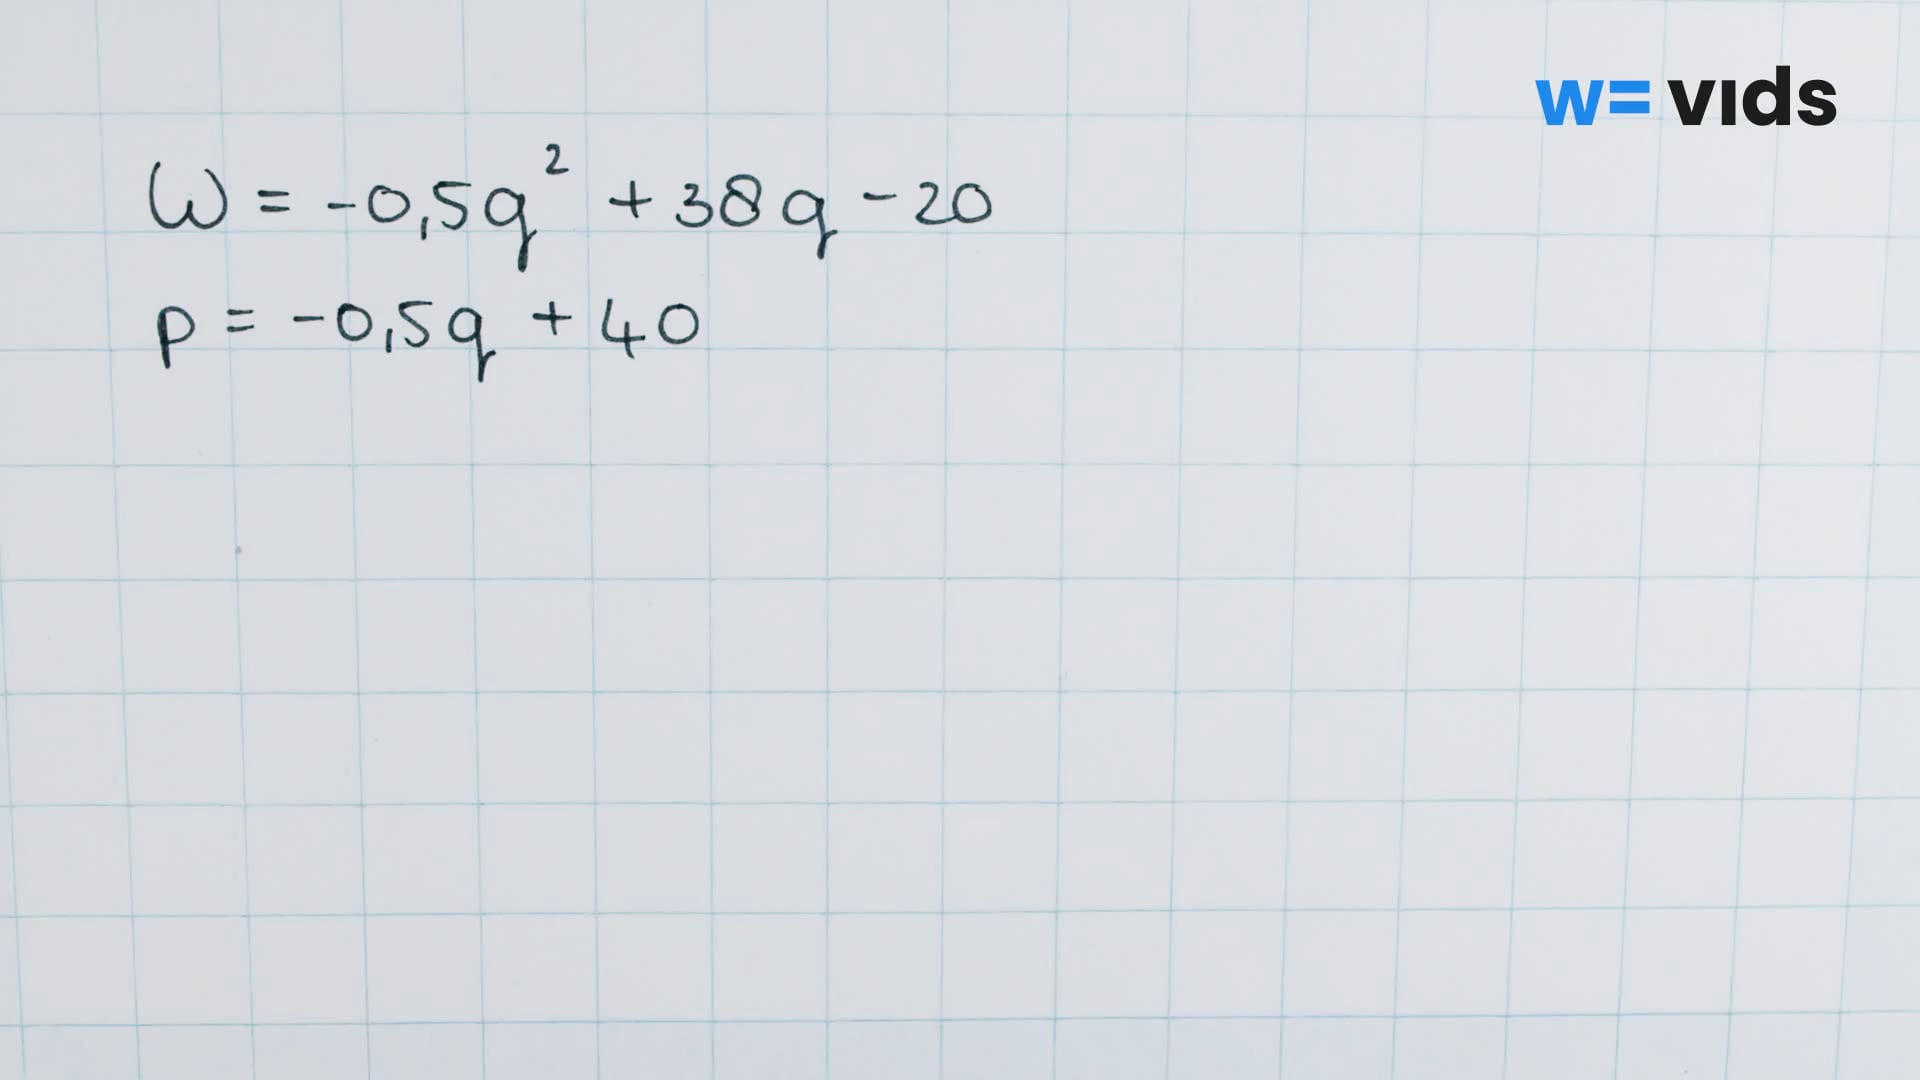 w= vids
W = -0,5q² + 38q - 20
p = -0,5q + 40